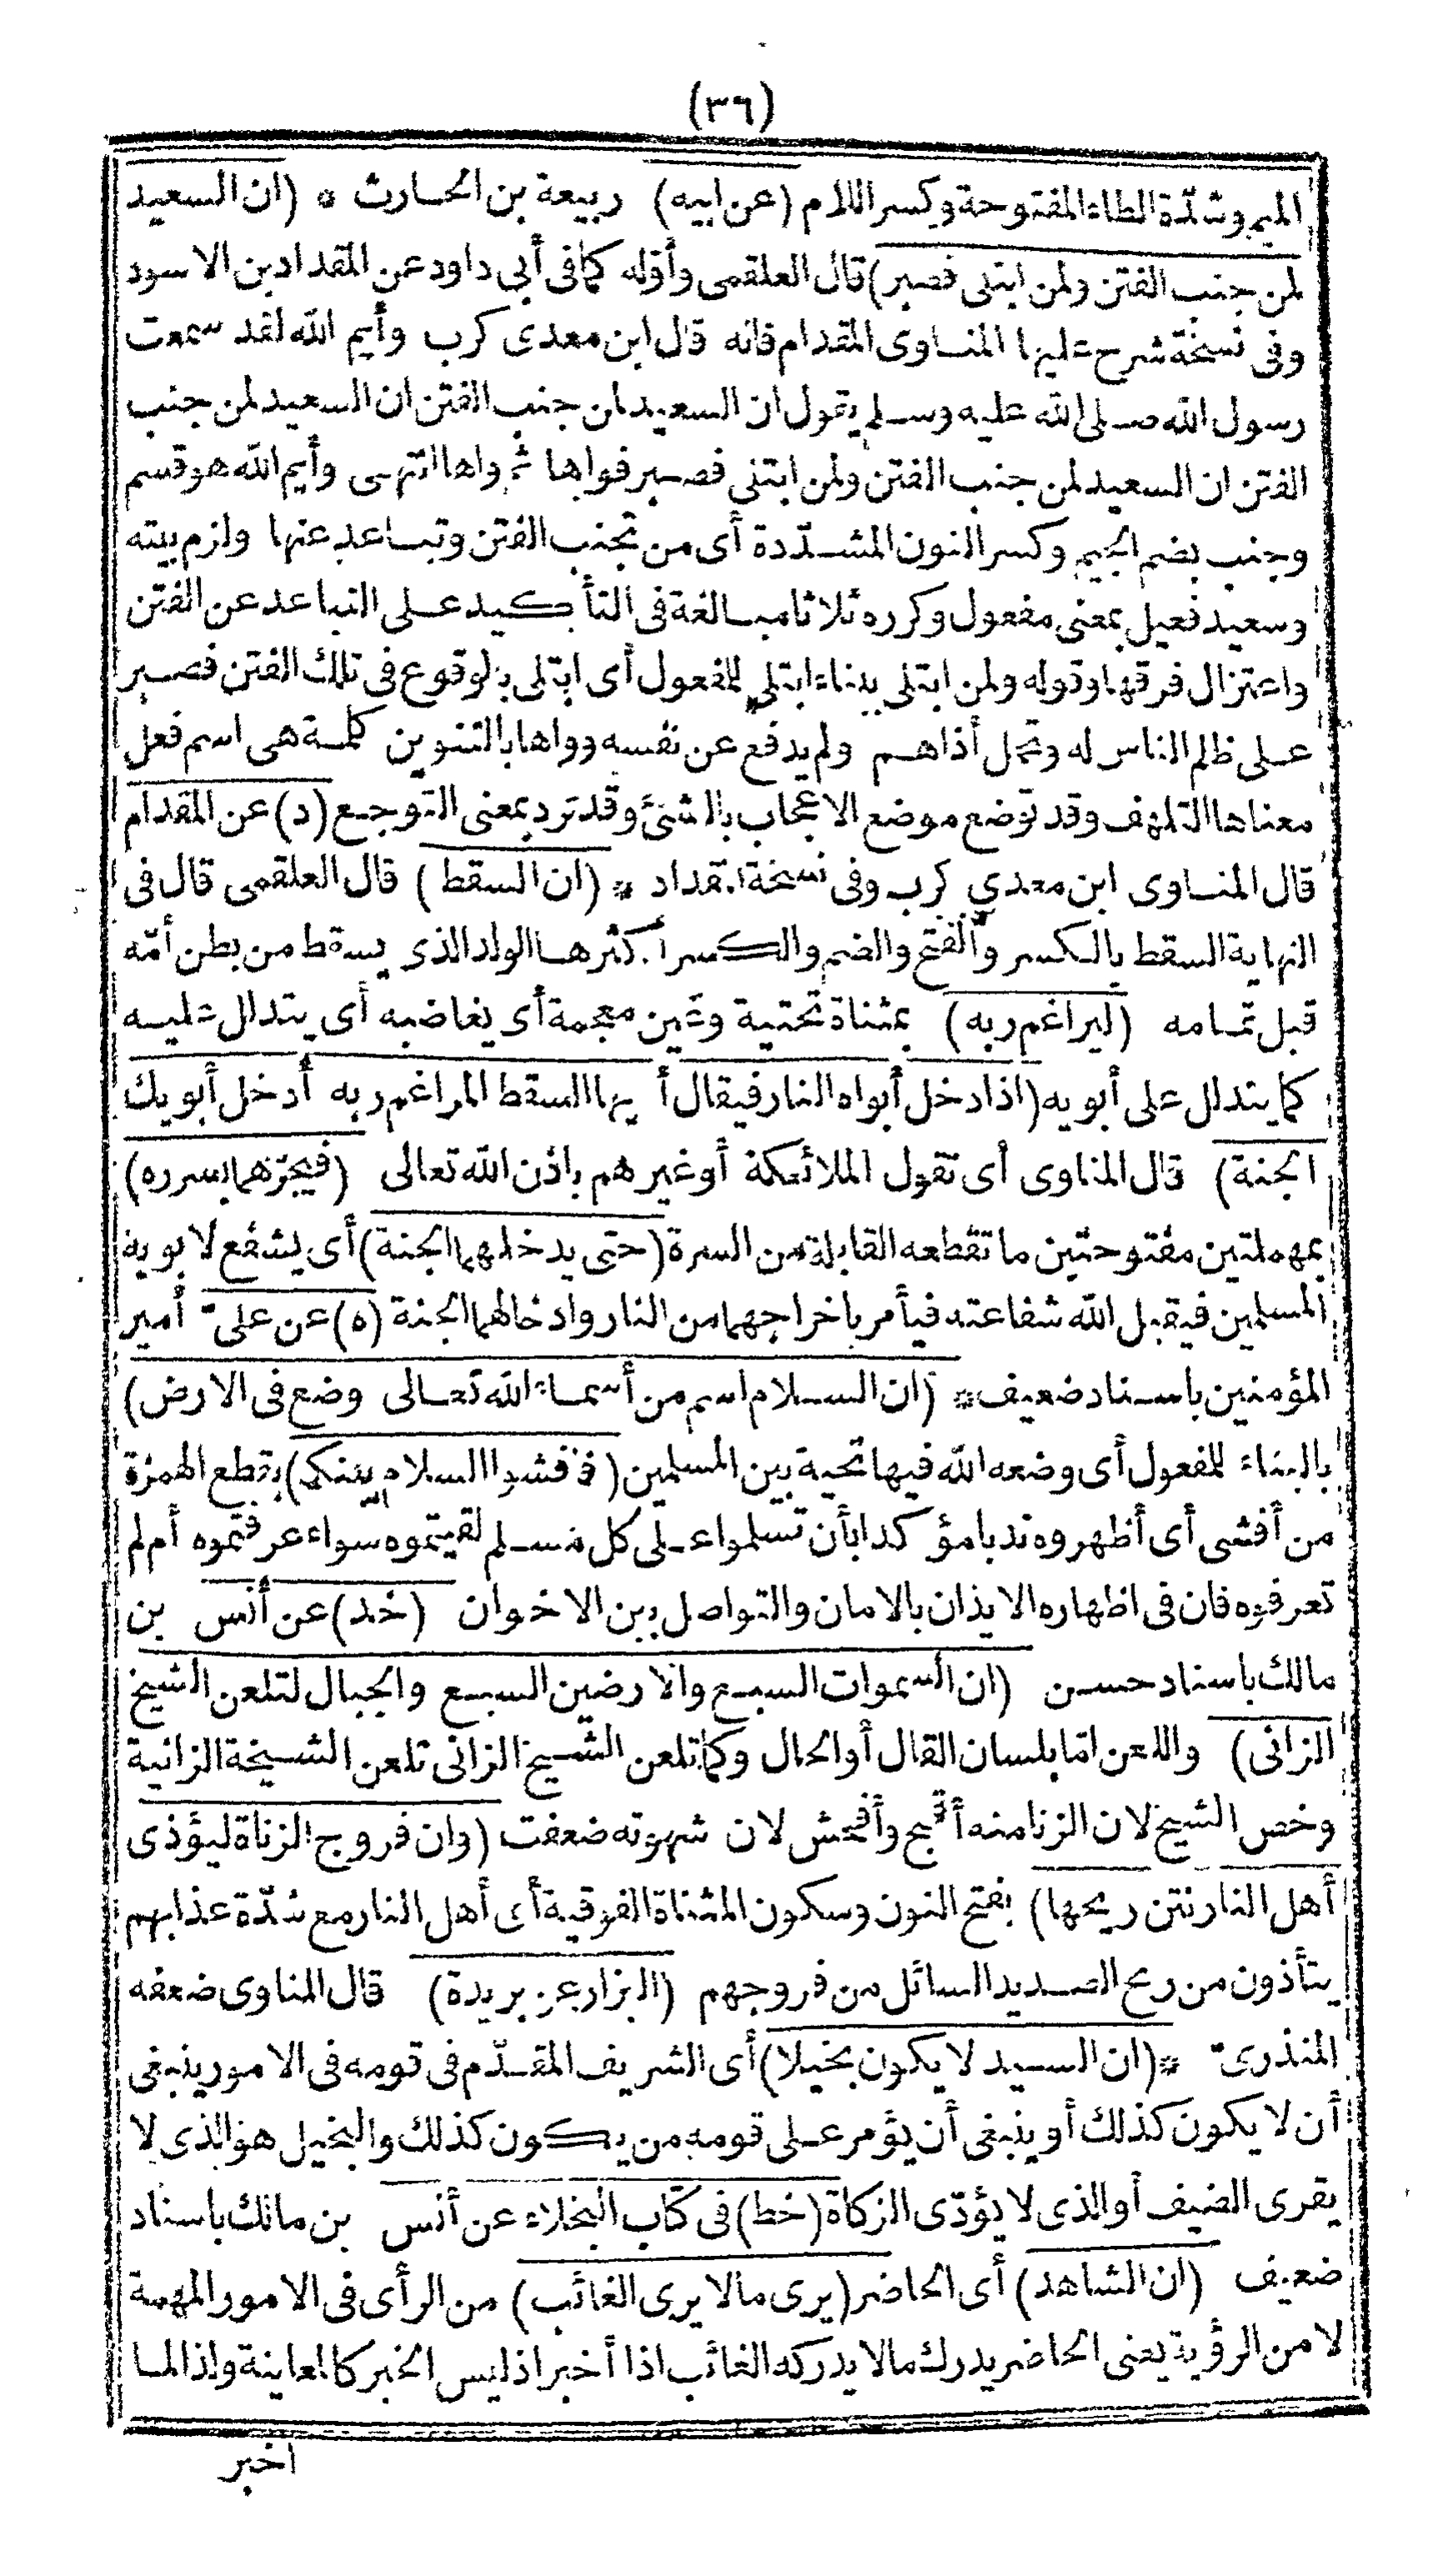 (٣٦)
الميم وشدّة الطاء المفتوحة وكسر اللام (عن ابيه) ربيعة بن الحارث * (ان السعيد
لمن جنب الفتن ولمن ابتلى فصبر) قال العلقمى وأوّله كما فى أبي داود عن المقداد بن الاسود
وفى نسخة شرح عليها المناوى المقدام فانه قال ابن معدى كرب وأيم الله لقد سمعت
رسول الله صلى الله عليه وسلم يقول ان السعيد لمن جنب الفتن ان السعيد لمن جنب
الفتن ان السعيد لمن جنب الفتن ولمن ابتلى فصبر فواها ثم واها انتهى وأيم الله هو قسم
وجنب بضم الجيم وكسر النون المشدّدة أى من تجنب الفتن وتباعد عنها ولزم بيته
وسعيد فعيل بمعنى مفعول وكرره ثلاثا مبالغة فى التأكيد على التباعد عن الفتن
واعتزال فرقها وقوله ولمن ابتلى ببناء ابتلى للمفعول أى ابتلى بالوقوع فى تلك الفتن فصبر
على ظلم الناس له وتحمل أذاهم ولم يدفع عن نفسه وواها بالتنوين كلمة هى اسم فعل
معناها التلهف وقد توضع موضع الاعجاب بالشئ وقد ترد بمعنى التوجع (د) عن المقدام
قال المناوى ابن معدي كرب وفى نسخة المقداد * (ان السقط) قال العلقمى قال فى
النهاية السقط بالكسر والفتح والضم والكسر أكثرها الولد الذى يسقط من بطن أمّه
قبل تمامه (ليراغم ربه) بمثناة تحتية وغين معجمة أى يغاضبه أى يتدلل عليه
كما يتدلل على أبويه (اذا دخل أبواه النار فيقال أيها السقط المراغم ربه أدخل أبويك
الجنة) قال المناوى أى تقول الملائكة أو غيرهم باذن الله تعالى (فيجرّهما بسرره)
بمهملتين مفتوحتين ما تقطعه القابلة من السرة (حتى يدخلهما الجنة) أى يشفع لابويه
المسلمين فيقبل الله شفاعته فيأمر باخراجهما من النار وادخالهما الجنة (ه) عن علىّ أمير
المؤمنين باسناد ضعيف * (ان السلام اسم من أسماء الله تعالى وضع فى الارض)
بالبناء للمفعول أى وضعه الله فيها تحية بين المسلمين (فافشوا السلام بينكم) بقطع الهمزة
من أفشى أى أظهروه ندبا مؤكدا بأن تسلموا على كل مسلم لقيتموه سواء عرفتموه أم لم
تعرفوه فان فى اظهاره الايذان بالامان والتواصل بين الاخوان (خد) عن أنس بن
مالك باسناد حسن (ان السموات السبع والارضين السبع والجبال لتلعن الشيخ
الزانى) واللعن امّا بلسان القال أو الحال وكما تلعن الشيخ الزانى تلعن الشيخة الزانية
وخص الشيخ لان الزنا منه أقبح وأفحش لان شهوته ضعفت (وان فروج الزناة ليؤذى
أهل النار نتن ريحها) بفتح النون وسكون المثناة الفوقية أى أهل النار مع شدّة عذابهم
يتأذون من ريح الصديد السائل من فروجهم (البزار عن بريدة) قال المناوى ضعفه
المنذرىّ * (ان السيد لا يكون بخيلا) أى الشريف المقدّم فى قومه فى الامور ينبغى
أن لا يكون كذلك أو ينبغى أن يؤمر على قومه من يكون كذلك والبخيل هو الذى لا
يقرى الضيف أو الذى لا يؤدّى الزكاة (خط) فى كتاب البخلاء عن أنس بن مالك باسناد
ضعيف (ان الشاهد) أى الحاضر (يرى مالا يرى الغائب) من الرأى فى الامور المهمة
لا من الرؤية يعنى الحاضر يدرك مالا يدركه الغائب اذا أخبر اذ ليس الخبر كالمعاينة ولذا لما
اخبر